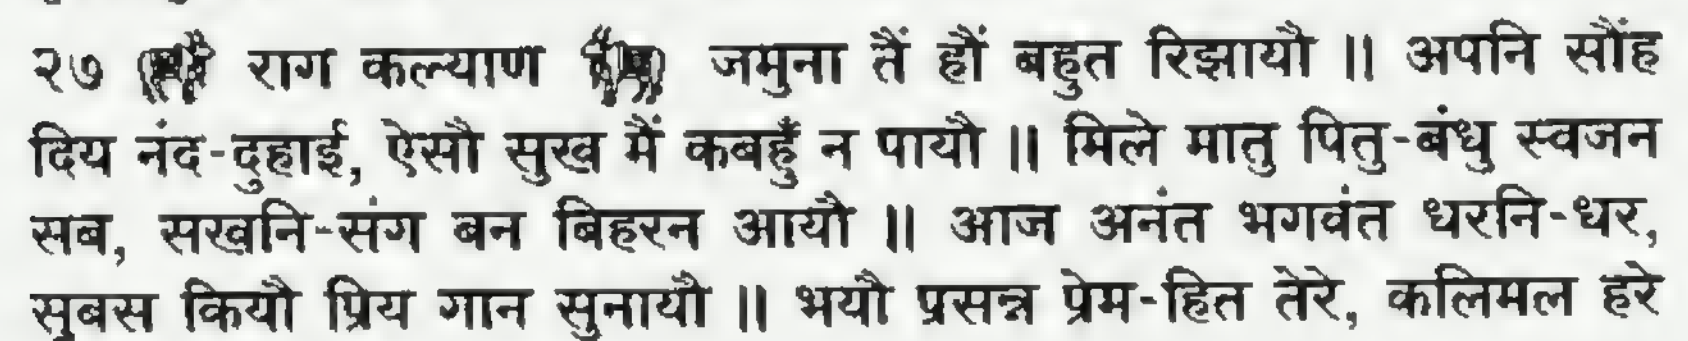 २७ राग कल्याण जमुना तैं हौं बहुत रिझायौ ॥ अपनि सौंह
दिय नंद-दुहाई, ऐसौ सुख मैं कबहुँ न पायौ ॥ मिले मातु पितु-बंधु स्वजन
सब, सखनि-संग बन बिहरन आयौ ॥ आज अनंत भगवंत धरनि-धर,
सुबस कियौ प्रिय गान सुनायौ ॥ भयौ प्रसन्न प्रेम-हित तेरे, कलिमल हरे